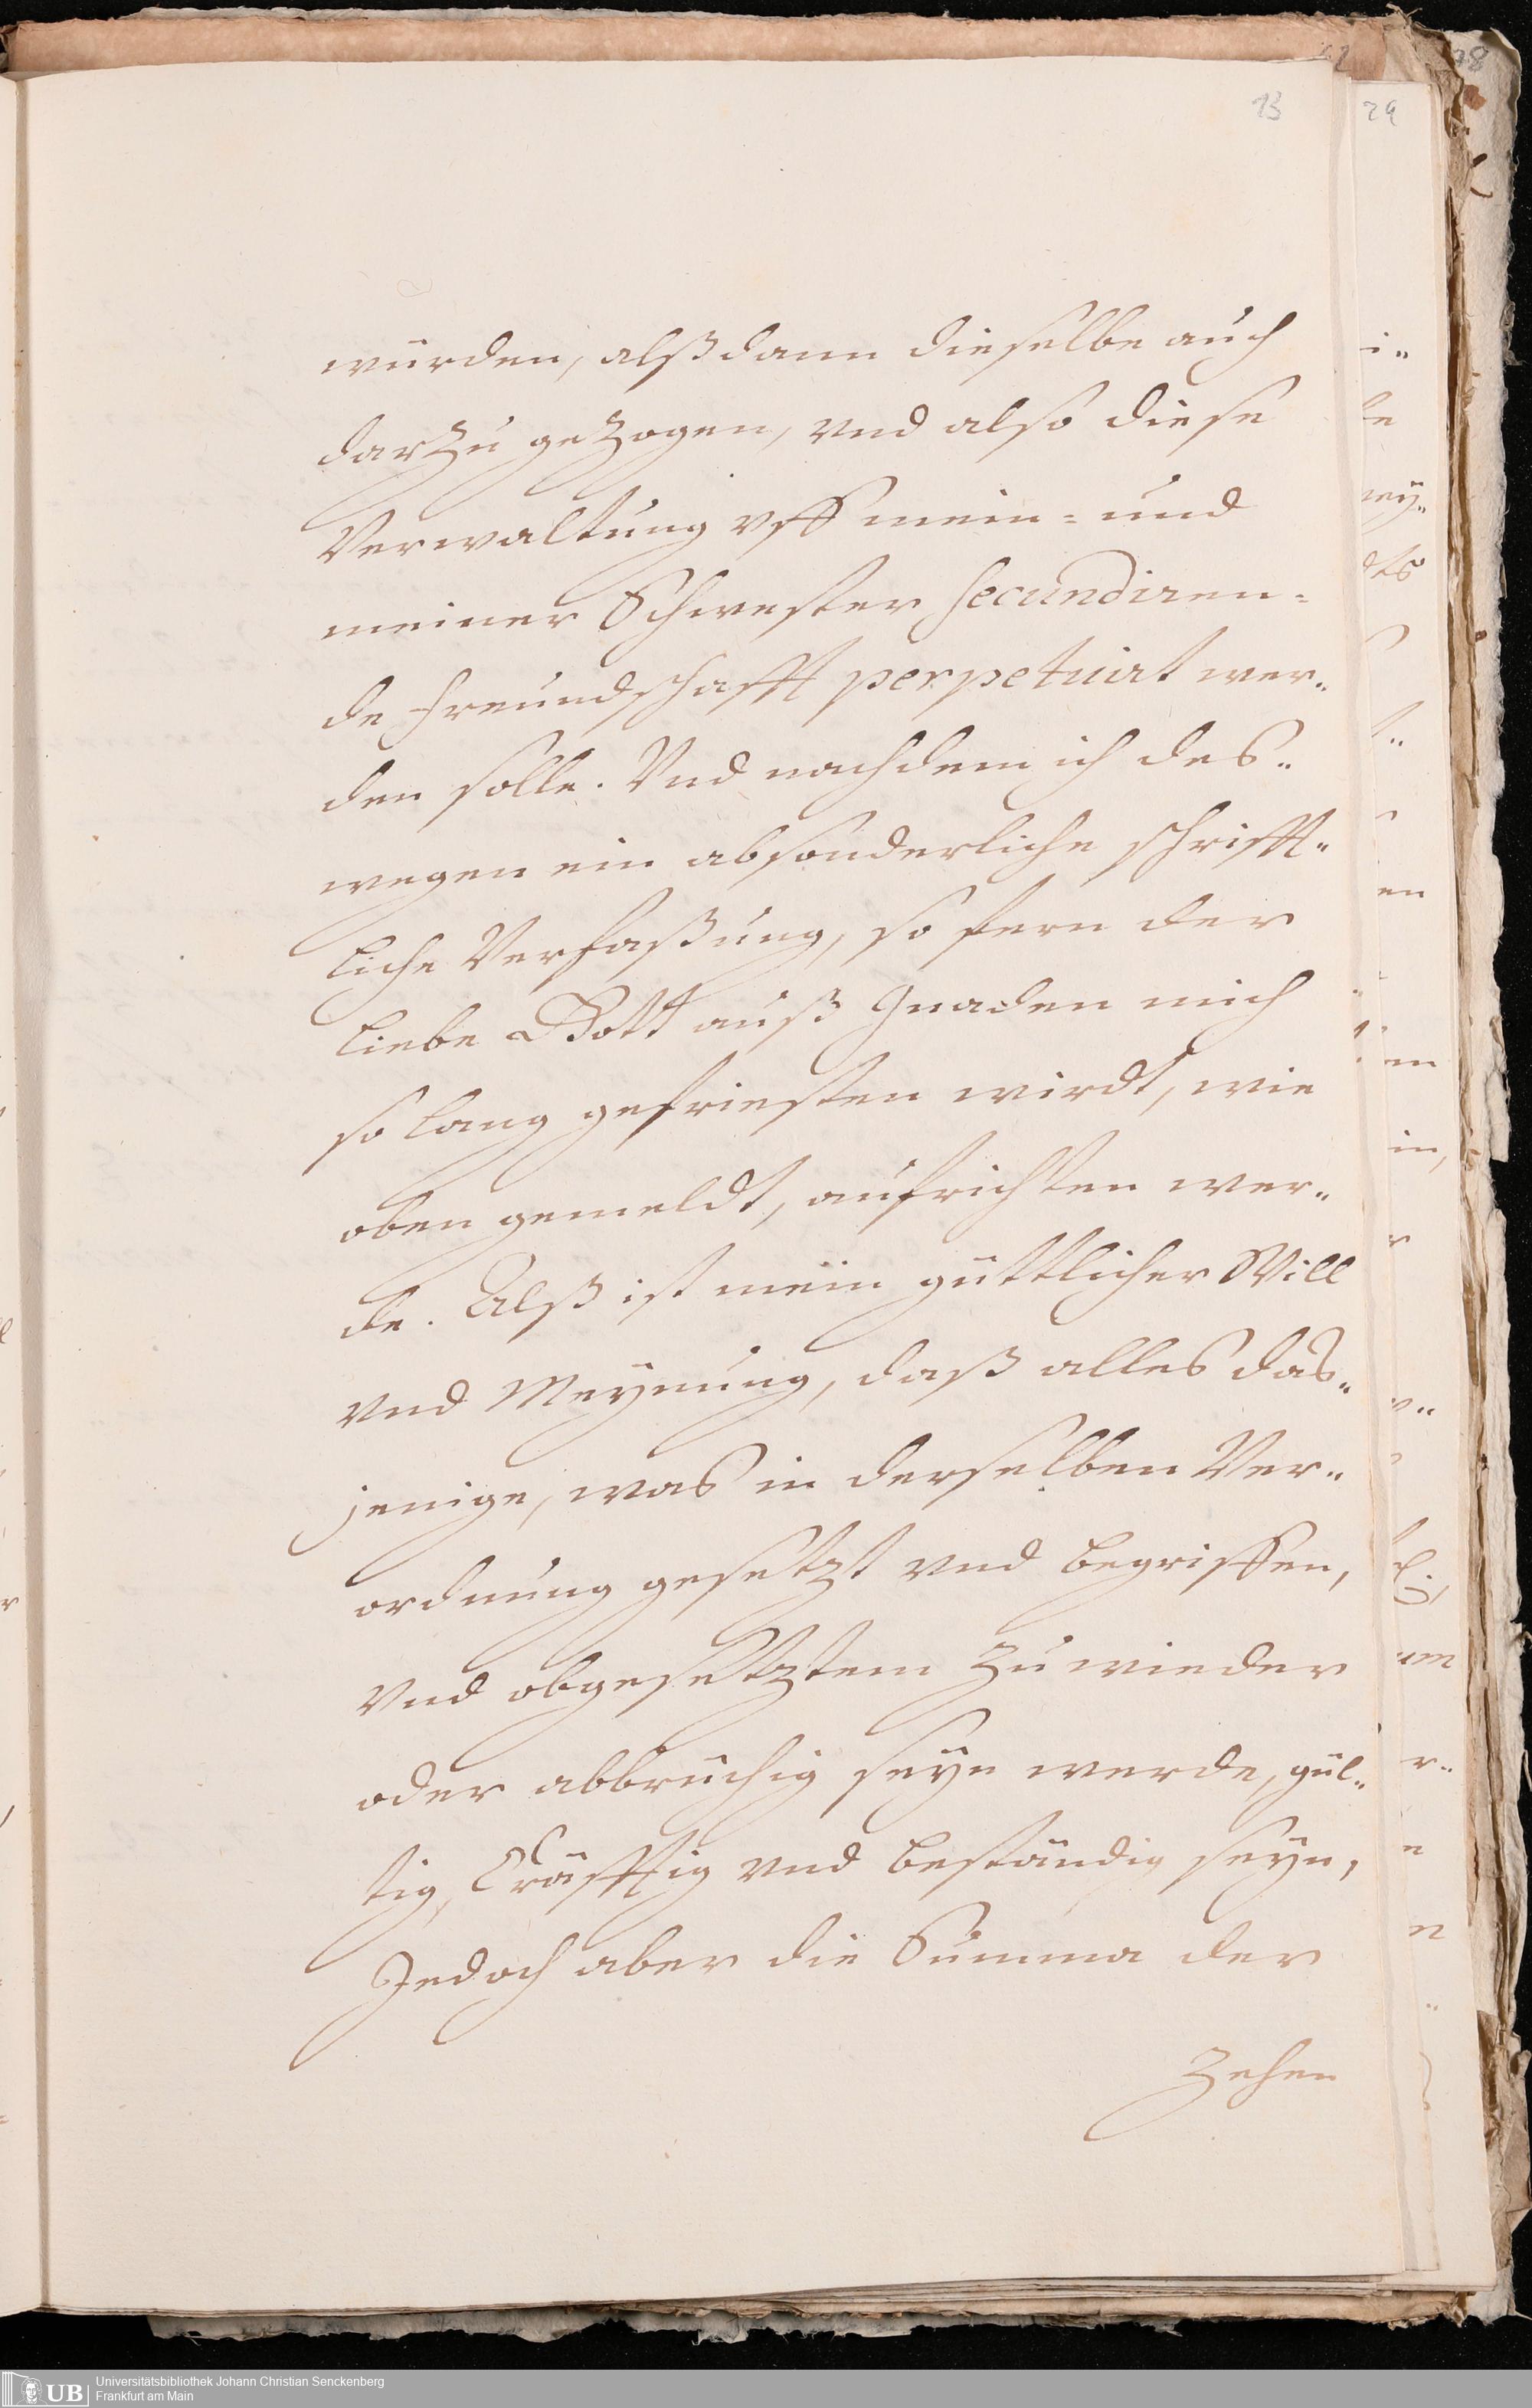 13
würden, alß dann dieselbe auch
darzu gezogen, vnd also diese
Verwaltung vff mein- und
meiner Schwester secundiren-
de freundschafft perpetuirt wer-
den solle. Vnd nachdem ich des-
wegen ein absonderliche schrifft-
liche Verfaßung, so fern der
liebe Gott auß Gnaden mich
so lang gefriesten wirdt, wie
oben gemeldt, aufrichten wer-
de. Alß ist mein güttlicher Will
vnd Meynung, daß alles das-
jenige, was in derselben Ver-
ordnung gesetzt vnd begriffen,
vnd obgesetztem zu wieder
oder abbrüchig seyn werde, gül-
tig, kräfftig vnd beständig seyn,
Jedoch aber die Summa der
zehen
Universitätsbibliothek Johann Christian Senckenberg
Frankfurt am Main
UB